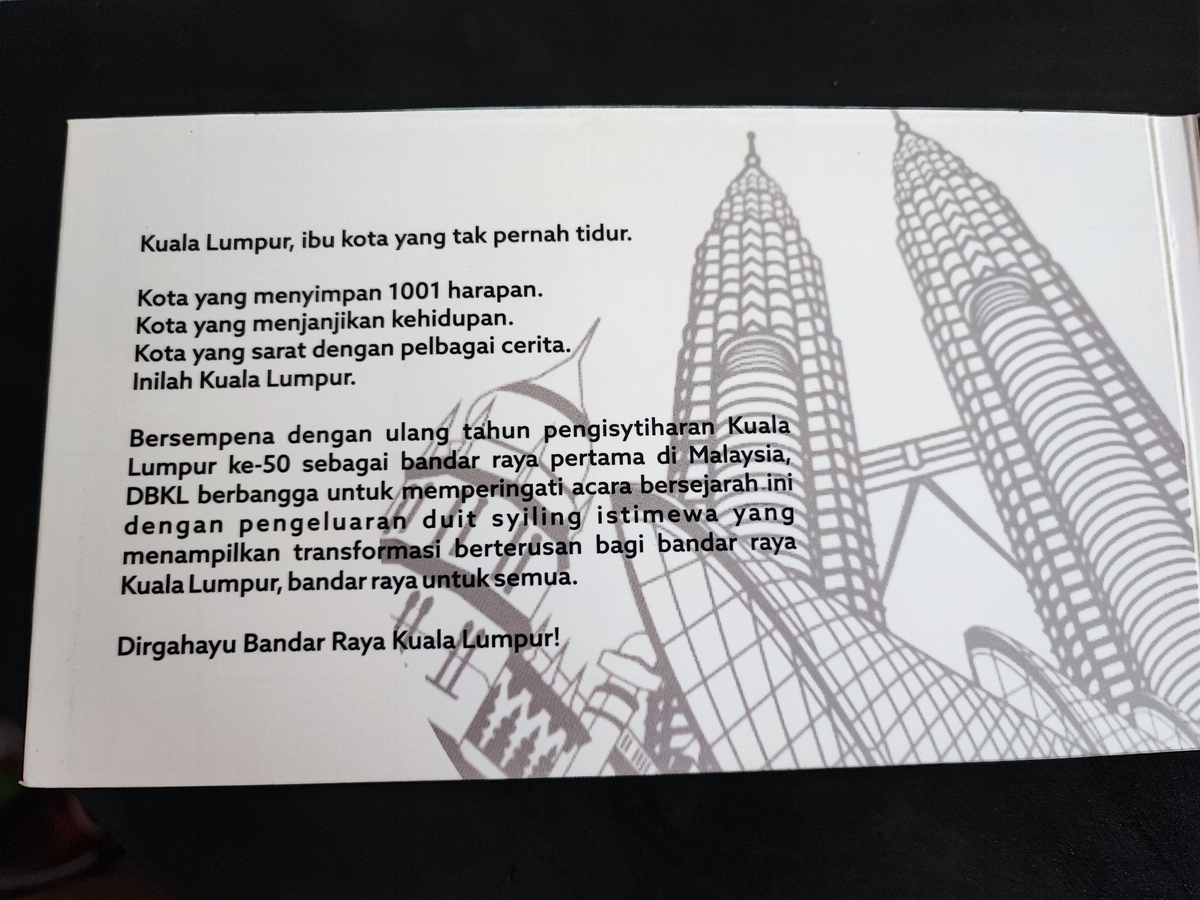 Kuala Lumpur, ibu kota yang tak pernah tidur.
Kota yang menyimpan 1001 harapan.
Kota yang menjanjikan kehidupan.
Kota yang sarat dengan pelbagai cerita.
Inilah Kuala Lumpur.
Bersempena dengan ulang tahun pengisytiharan Kuala
Lumpur ke-50 sebagai bandar raya pertama di Malaysia,
DBKL berbangga untuk memperingati acara bersejarah ini
dengan pengeluaran duit syiling istimewa yang
menampilkan transformasi berterusan bagi bandar raya
Kuala Lumpur, bandar raya untuk semua.
Dirgahayu Bandar Raya Kuala Lumpur!